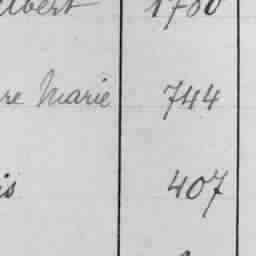 lbert 1760
re Marie 744
is 407